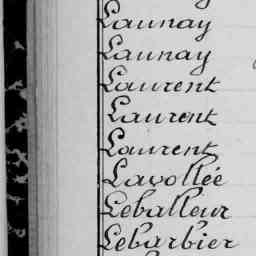 Launay
Launay
Laurent
Laurent
Laurent
Lavollée
Leballeur
Lebarbier